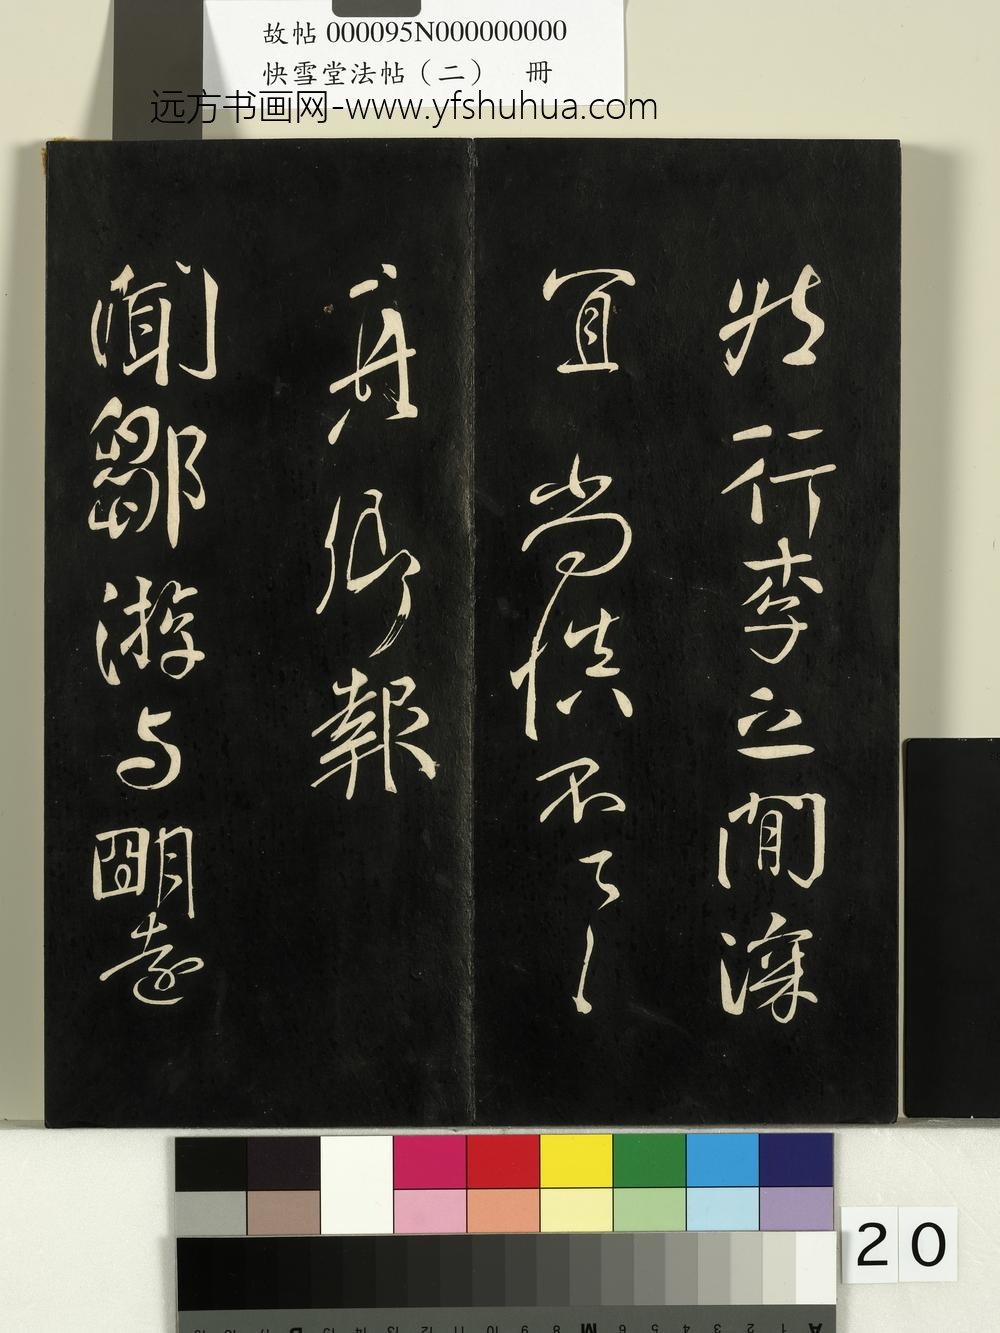 故帖 000095N000000000
快雪堂法帖（二） 冊
远方书画网-www.yfshuhua.com
然行李之間深
宜尚慎不具
真卿報
聞鄒游与明遠
20